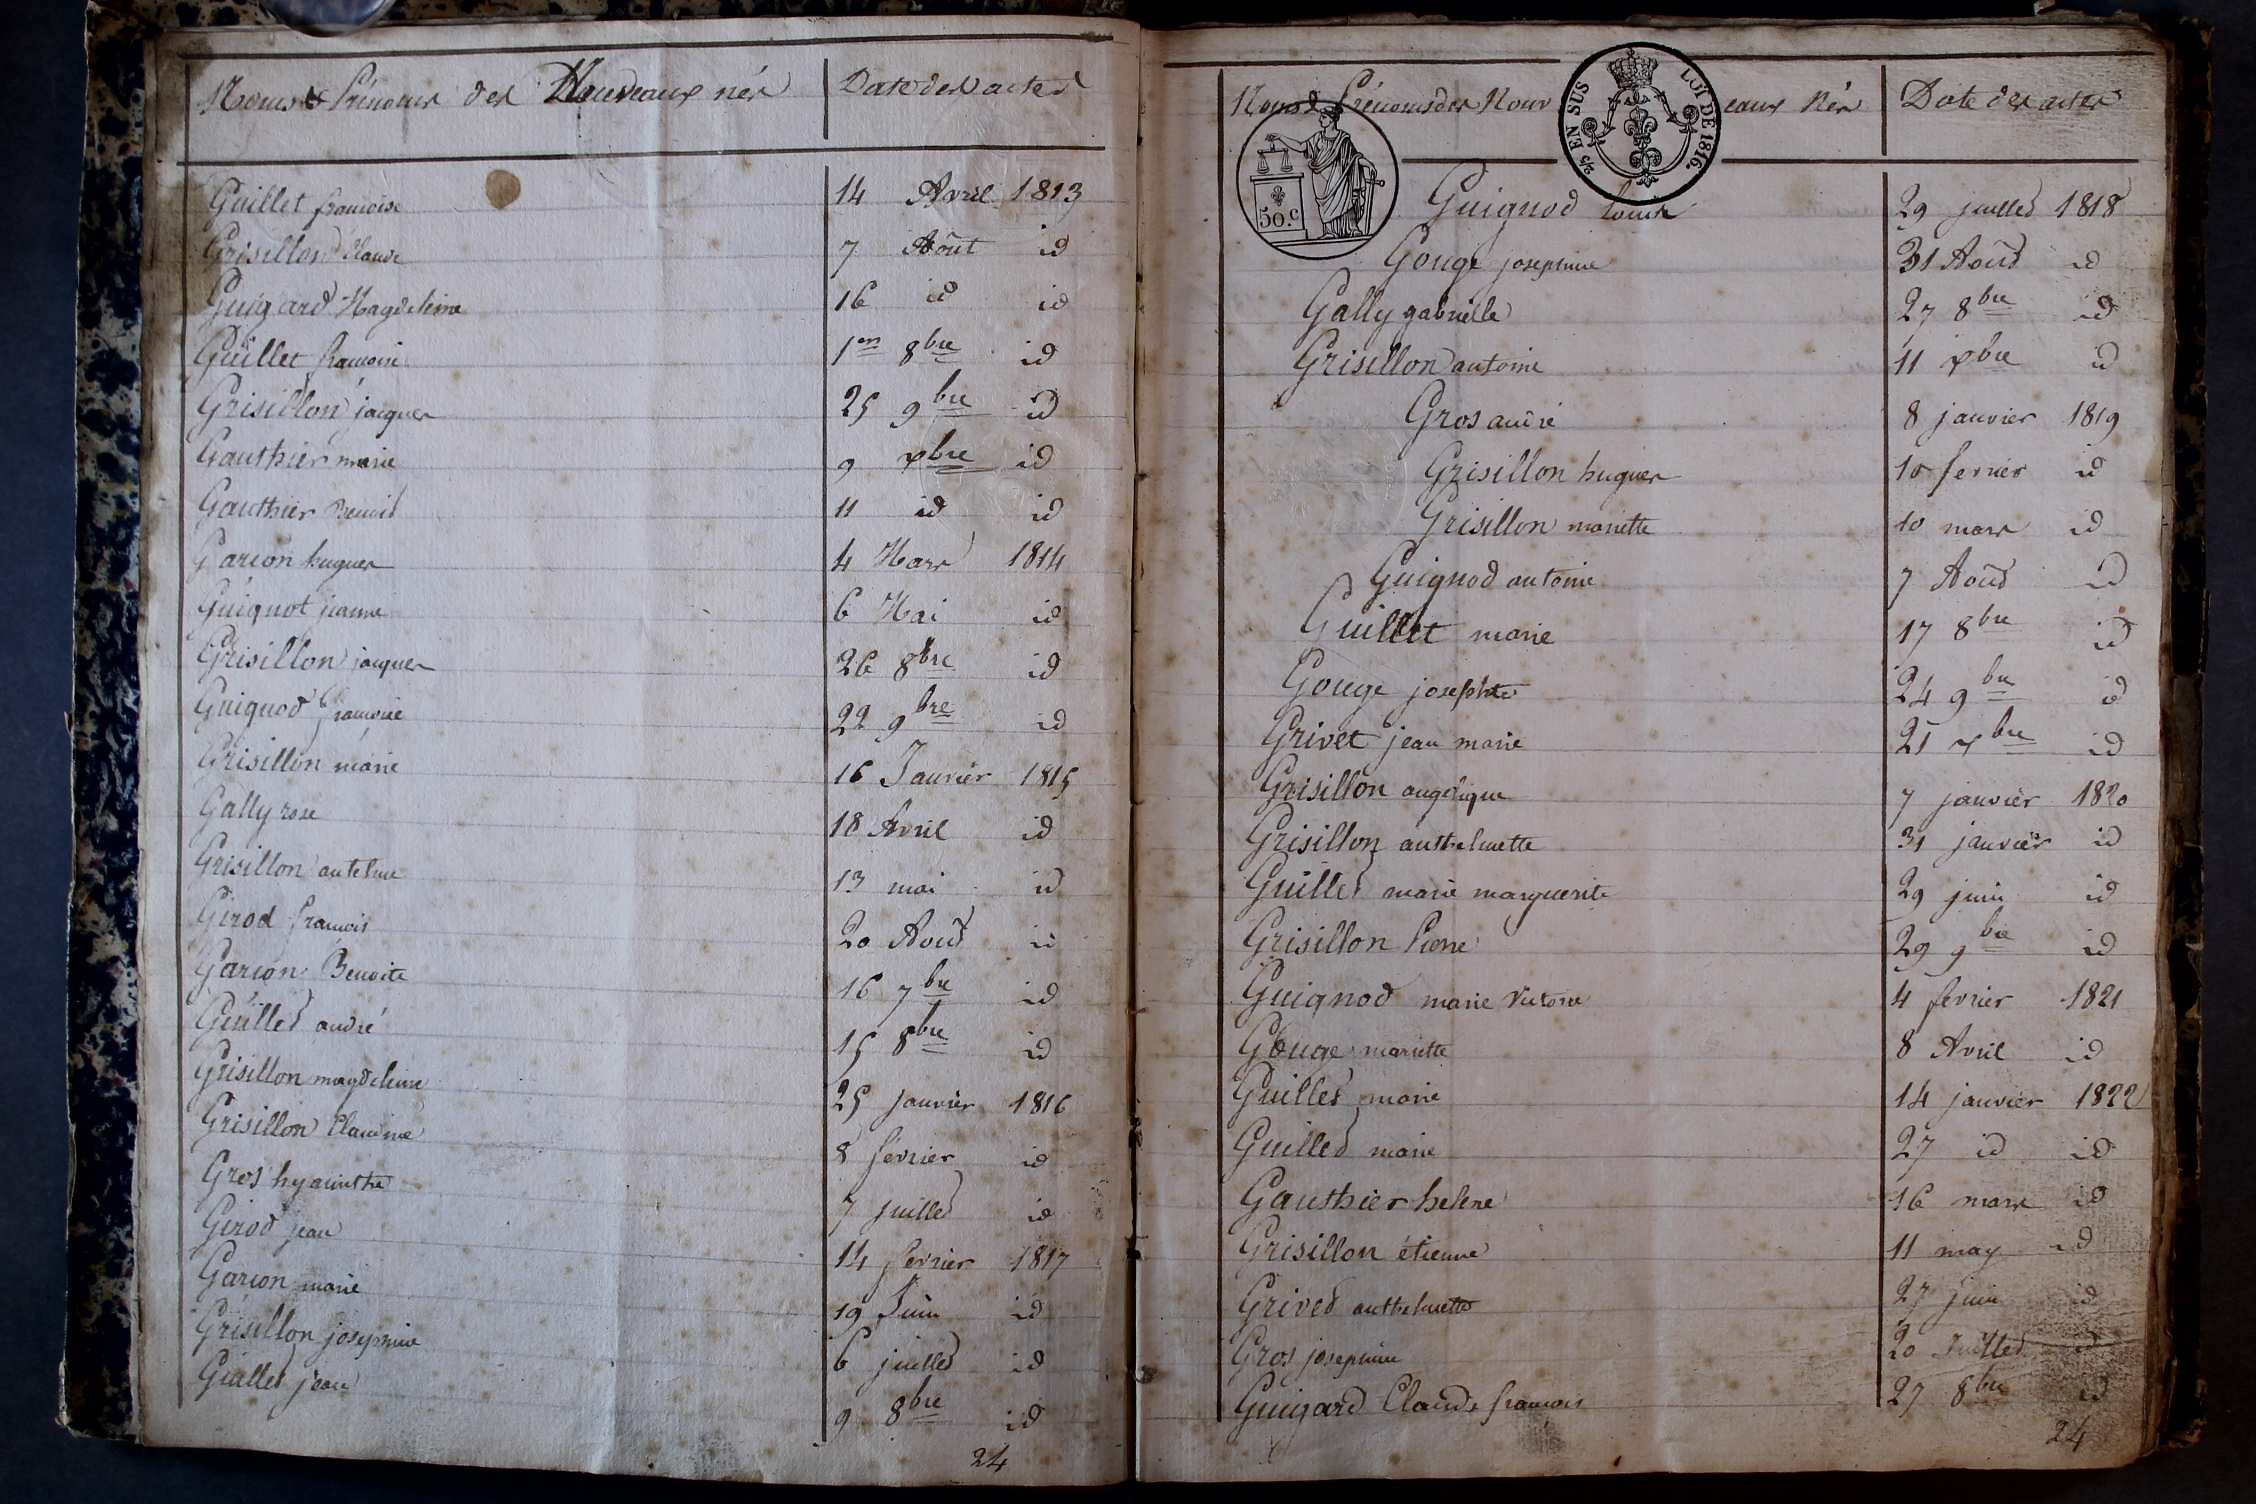 Noms & Prénoms des Nouveaux nés Date des actes
Guillet francoise 14 Avril 1813
Grisillon Claude 7 Août id
Guigard Magdeleine 16 id id
Guillet francois 1er 8bre id
Grisillon jacques 25 9bre id
Gauthier marie 9 xbre id
Gauthier Benoit 11 id id
Garion hugues 4 Mars 1814
Guignot jeanne 6 Mai id
Grisillon jacques 26 8bre id
Guignod francoise 22 9bre id
Grisillon marie 16 Janvier 1815
Gally rose 18 Avril id
Grisillon antelme 13 mai id
Girod francois 20 Aout id
Garion Benoite 16 7bre id
Guillet andré 15 8bre id
Grisillon magdeleine 25 janvier 1816
Grisillon Claudine 8 fevrier id
Gros hyacinthe 7 juillet id
Girod jean 14 fevrier 1817
Garion marie 19 Juin id
Grisillon josephine 6 juillet id
Guillet jean 9 8bre id
24
Noms & Prénoms des Nouveaux Nés Date des actes
2/5 EN SUS LOI DE 1816.
50.c
Guignod Louise 29 juillet 1818
Gouge josephine 31 Août id
Gally gabrielle 27 8bre id
Grisillon antoine 11 xbre id
Gros andré 8 janvier 1819
Grisillon hugues 10 fevrier id
Grisillon mariette 10 mars id
Guignod antoine 7 Août id
Guillet marie 17 8bre id
Gouge josephte 24 9bre id
Grivet jean marie 21 xbre id
Grisillon angelique 7 janvier 1820
Grisillon anthelmette 31 janvier id
Guillet marie marguerite 29 juin id
Grisillon Pierre 29 9bre id
Guignod marie Victoire 4 fevrier 1821
Gouge mariette 8 Avril id
Guillet marie 14 janvier 1822
Guillet marie 27 id id
Gauthier helene 16 mars id
Grisillon étienne 11 may id
Grivet anthelmette 27 juin id
Gros josephine 20 Juillet id
Guigard Claude francois 27 8bre id
24